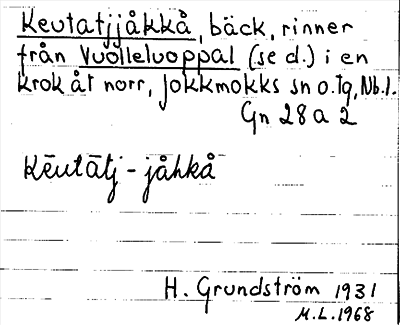 Keutatjjåkkå, bäck, rinner
från Vuolleluoppal (se d.) i en
krok åt norr, Jokkmokks sn o. tg, Nb. l.
Gn 28 a 2
Kēutātj - jåhkå
H. Grundström 1931
M.L. 1968